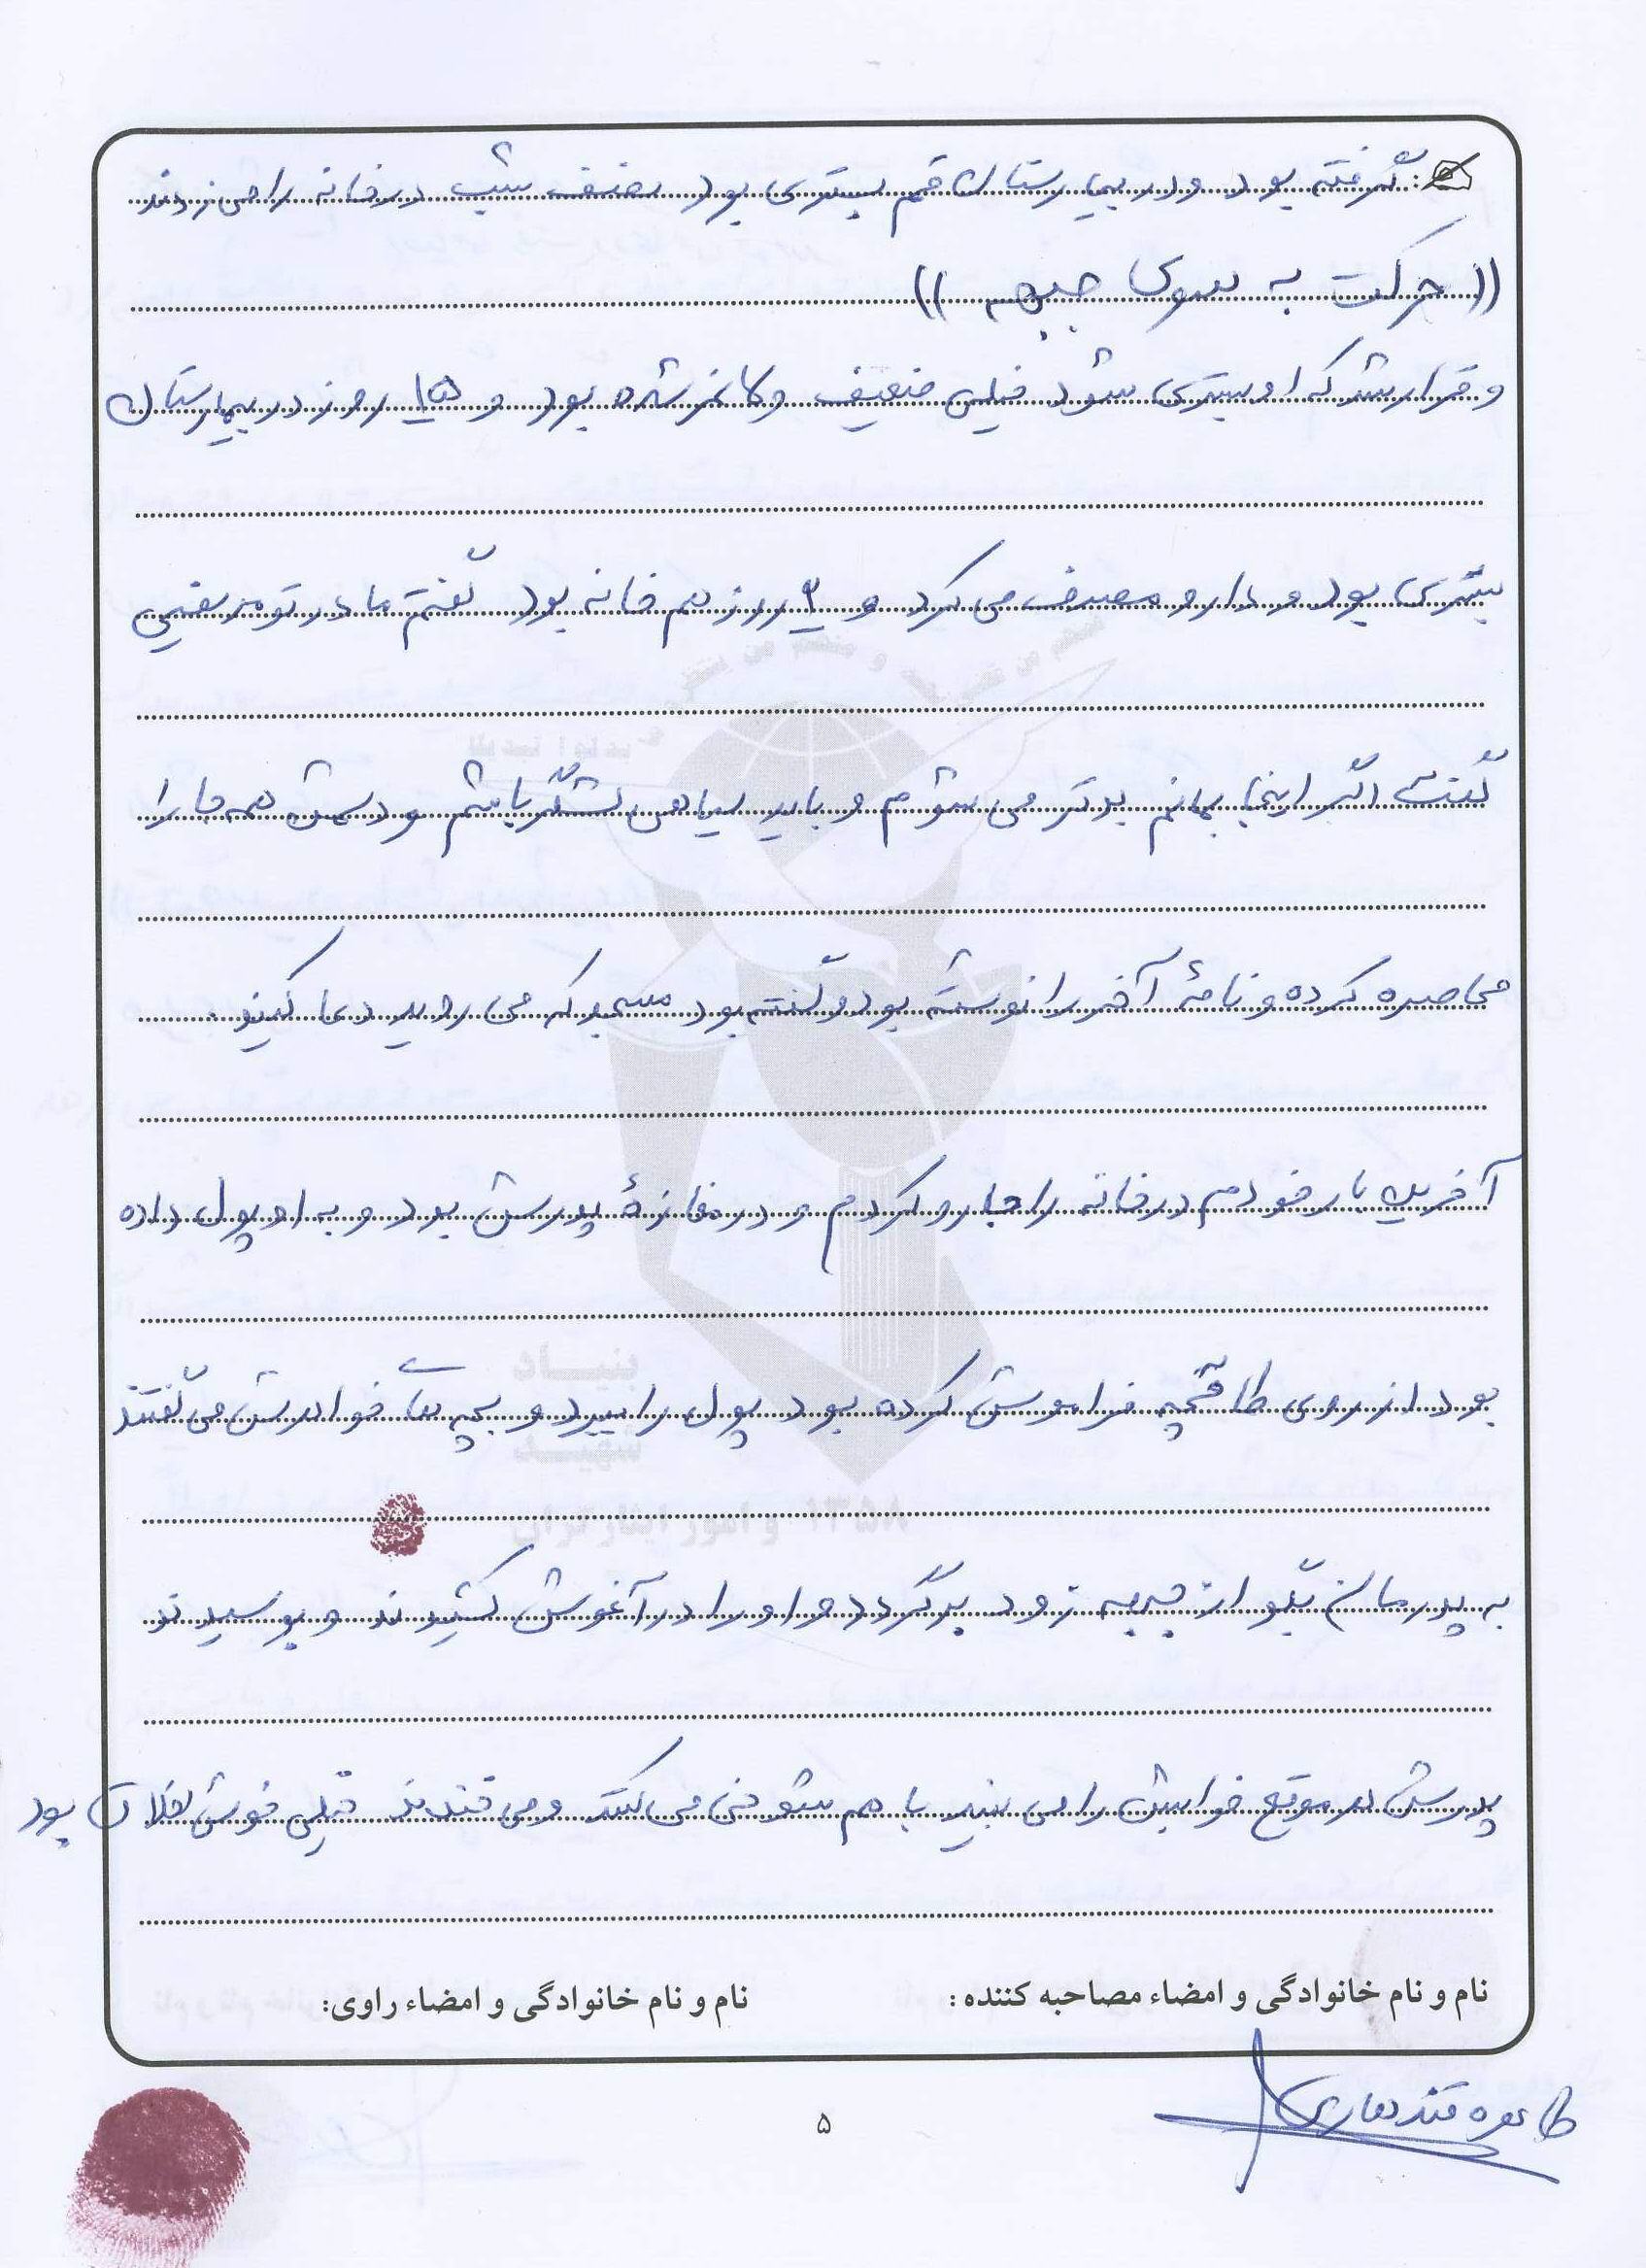 گرفته بود و در بیمارستان قم بستری بود نصف شب در خانه را می زدند
(( حرکت به سوی جبهه ))
و قرار شد که او بستری شود خیلی ضعیف و لاغر شده بود و ۱۵ روز در بیمارستان
بستری بود و دارو مصرف می کرد و ۲ روز هم خانه بود گفتم مادر تو مریضی
گفت اگر اینجا بمانم بدتر می شوم و باید سیاهی لشگر باشم و دشمن همه جا را
محاصره کرده و نامهٔ آخر را نوشته بود و گفته بود مسجد که می روید دعا کنید.
آخرین بار خودم در خانه را جارو کردم و در مغازهٔ پدرش بود و به او پول داده
بود از روی طاقچه فراموش کرده بود پول را ببرد و بچه های خواهرش می گفتند
به پدرمان بگو از جبهه زود برگردد و او را در آغوش کشیدند و بوسیدند
پدرش در موقع خوابش را می بیند با هم شوخی می کنند و می خندند خیلی خوش اخلاق بود
نام و نام خانوادگی و امضاء مصاحبه کننده :
نام و نام خانوادگی و امضاء راوی:
طاهره قندهاری
۵
بنیاد
شهید
و امور ایثارگران
۱۳۵۸